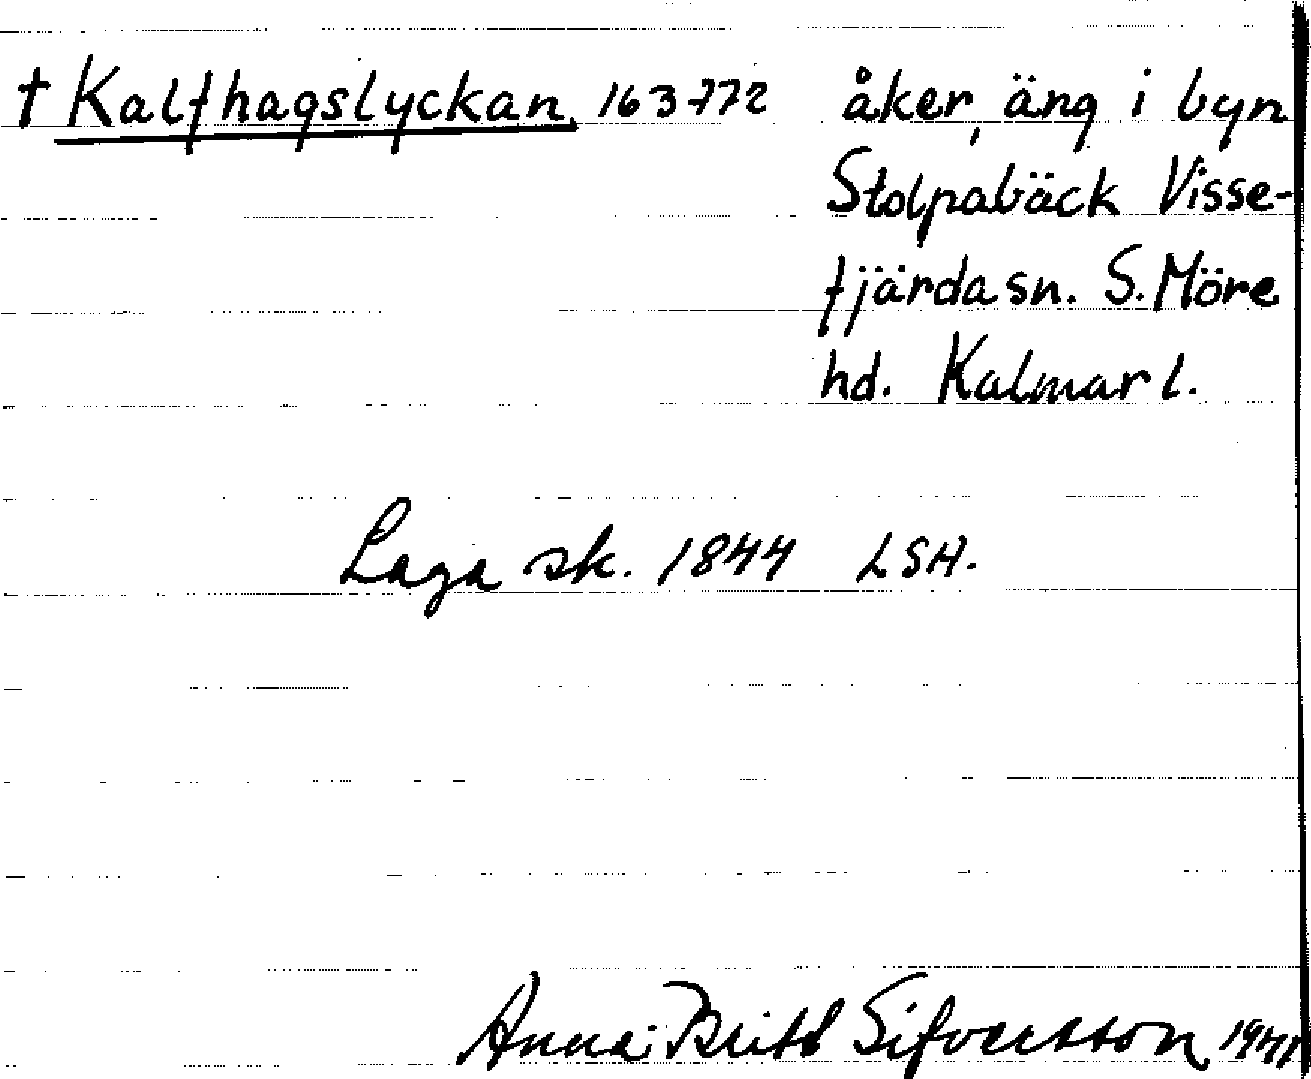 † Kalfhagslyckan 163-772 åker, äng i byn
Stolpabäck Visse-
fjärda sn. S. Möre
hd. Kalmar l.
Laga sk. 1844 LSA.
Anna-Britt Sifversson 1941